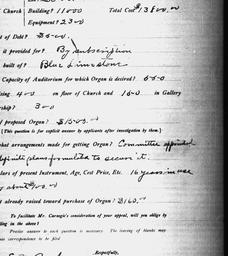 Church { Building? 11000 Total Cost $13800.00
Equipment? 2300
t of Debt?
it provided for? By subscription
built of? Blue Limestone
Capacity of Auditorium for which Organ is desired? 550
ising 400 on floor of Church and 150 in Gallery
rship? 300
f proposed Organ? $1500.00
(This question is for explicit answer by applicants after investigation by them.)
hat arrangements made for getting Organ? Committee appointed
definite plans formulated to secure it.
lars of present Instrument, Age, Cost Price, Etc. 16 years in use
about $
t already raised toward purchase of Organ? $160.00
To facilitate Mr. Carnegie's consideration of appeal, will you oblige by
lling in the above!
Precise answer to each question is necessary. The leaving of blanks may
correspondence to be filed
Respectfully,